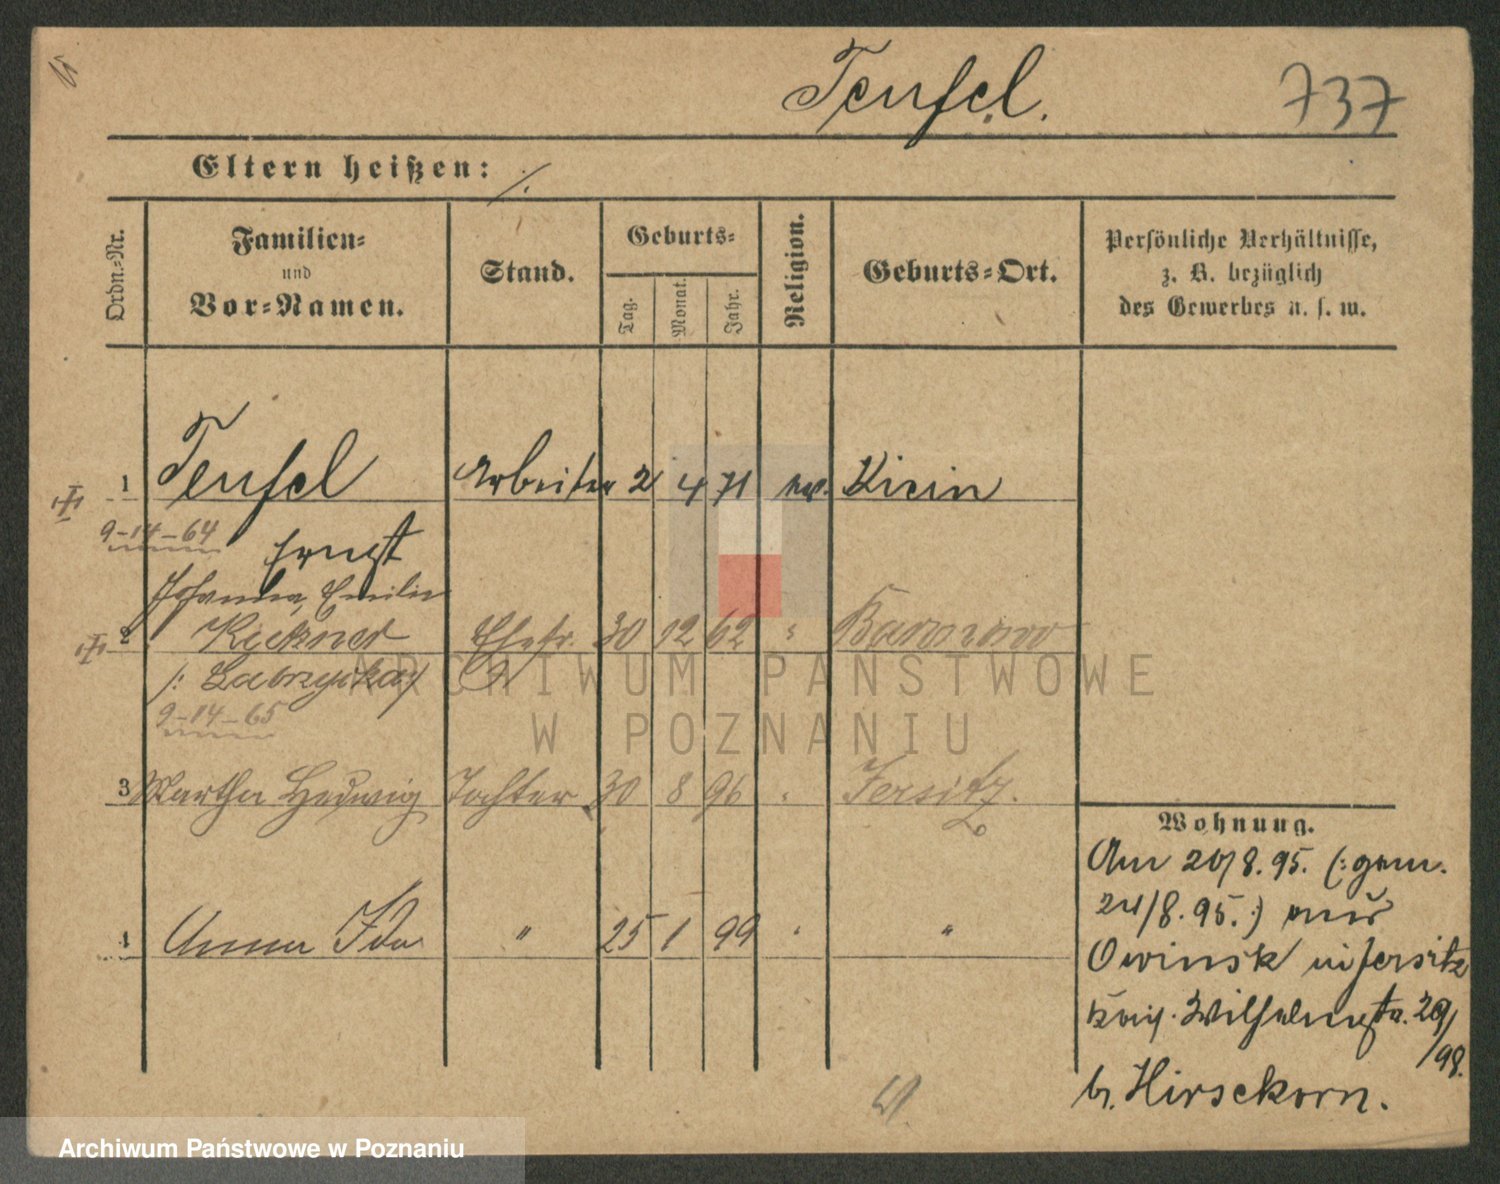 Teufel.
737
Eltern heißen: /.
Ordn.-Nr.
Familien-
und
Vor-Namen.
Stand.
Geburts-
Tag.
Monat.
Jahr.
Religion.
Geburts-Ort.
Persönliche Verhältnisse,
z. B. bezüglich
des Gewerbes u. s. w.
1 Teufel Arbeiter 2 4 71 ev. Kicin
9-14-64
Ernst
Johanna, Emilie
2 Ehefr. 30 12 62 "
9-14-65
3 Martha Hedwig Tochter 30 8 96 " Jersitz.
4 Anna Ida " 25 1 99 " "
Wohnung.
Am 20/8.95. (: gem.
24/8.95. :) aus
Owinsk in Jersitz
Wilhelmstr. 29/
/98.
b. Hirsekorn.
ARCHIWUM PAŃSTWOWE
W POZNANIU
Archiwum Państwowe w Poznaniu